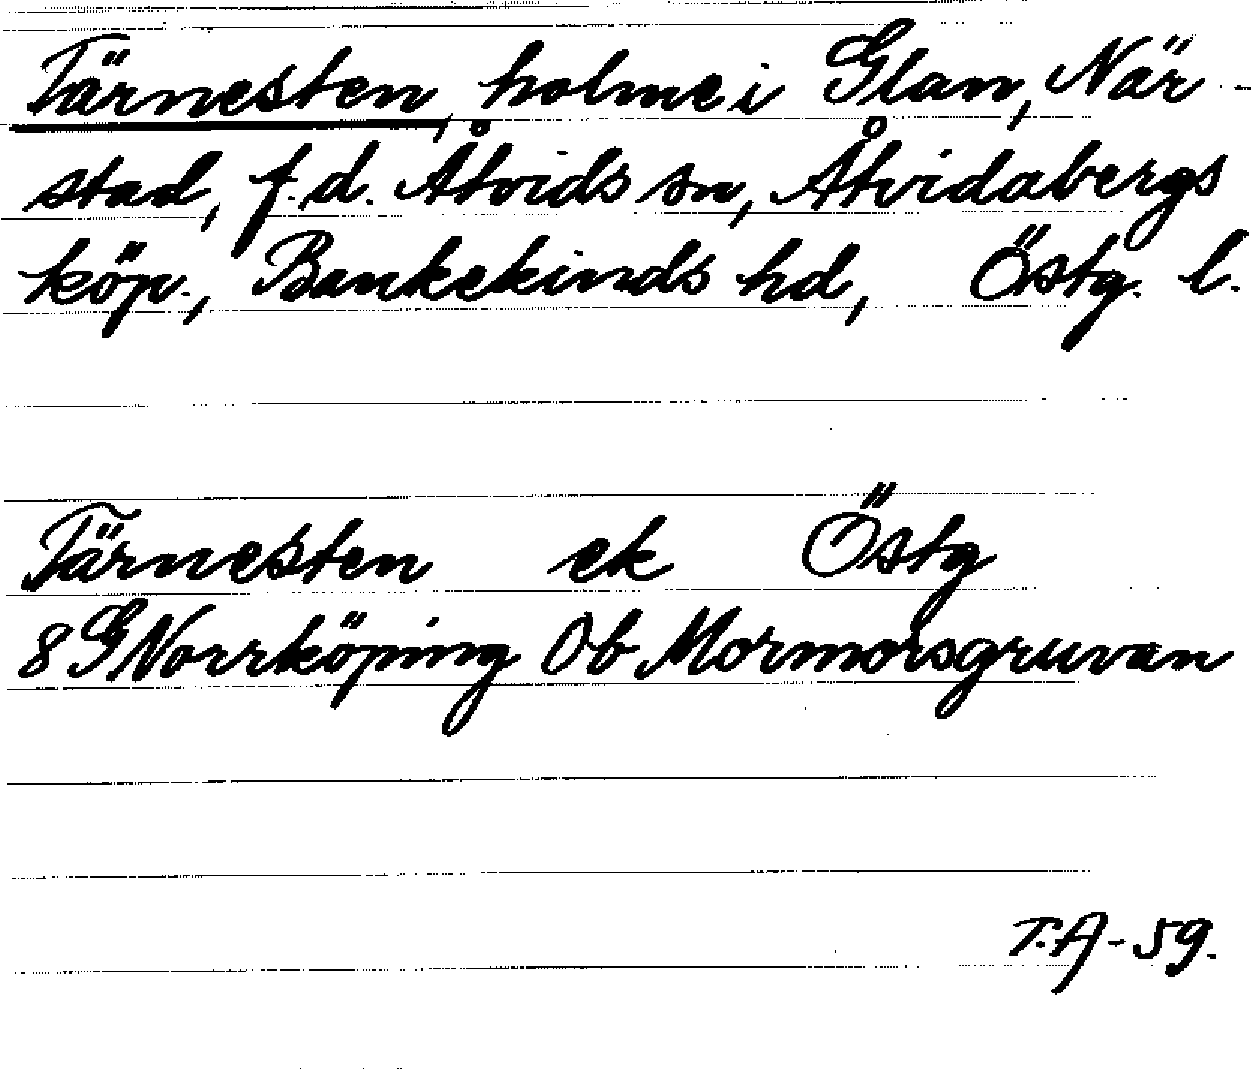 Tärnesten, holme i Glan, När-
stad, f.d. Åtvids sn, Åtvidabergs
köp., Bankekinds hd, Östg. l.
Tärnesten ek Östg
8G Norrköping 0b Mormorsgruvan
T.A-59.